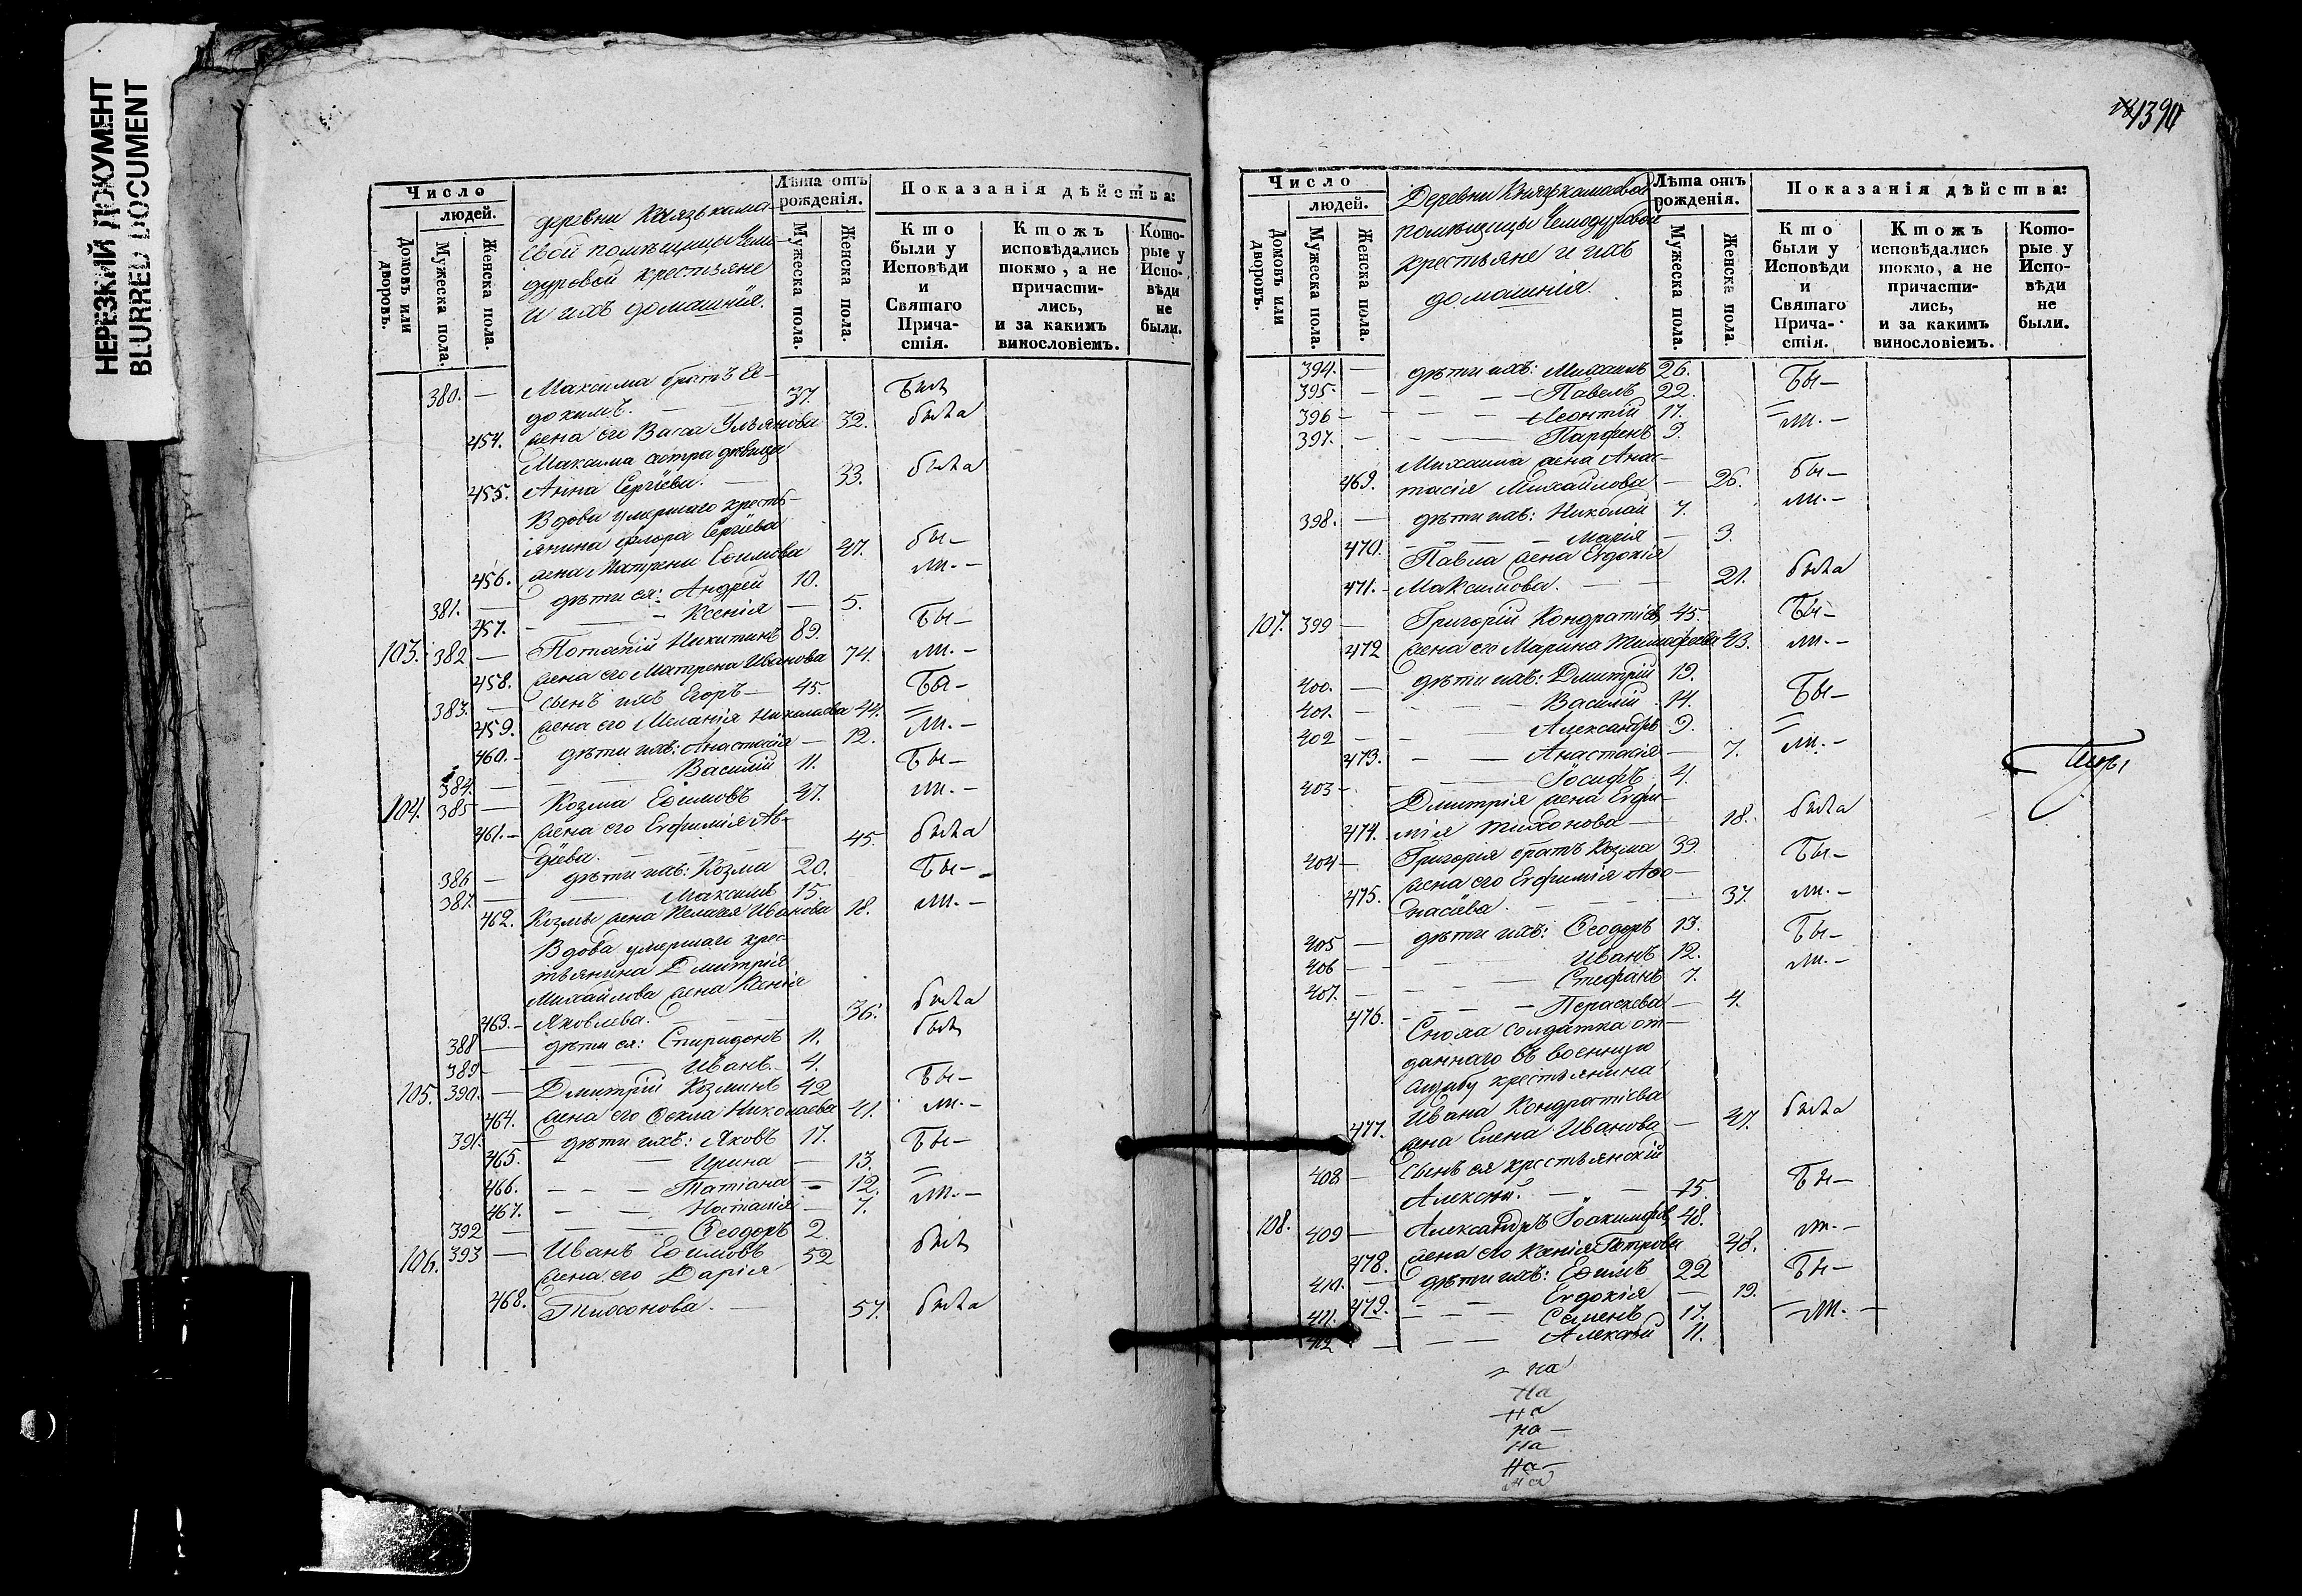 НЕРЕЗКИЙ ДОКУМЕНТ
BLURRED DOCUMENT
Число
людей.
Домовъ или дворовъ.
Мужеска пола.
Женска пола.
деревни Князькама-
евой помѣщицы Чемо-
дуровой крестьяне
и ихъ домашнія.
Лѣта отъ рожденія.
Мужеска пола.
Женска пола.
Показанія дѣйства:
Кто были у Исповѣди и Святаго Причастія.
Ктожъ исповѣдались токмо, а не причастились, и за какимъ винословіемъ.
Которые у Исповѣди не были.
380. — Максима братъ Ев-
докимъ. — — 37. былъ
454. жена его Васса Ульянова 32. была
Максима сестра девица
455. Анна Сергіева. — 33. была
Вдова умершаго кресть-
янина Флора Сергіева
456. жена Матрена Ефимова 47. бы-
381. — дѣти ея: Андрей 10. ли. -
457. — — Ксенія — 5.
103. 382 — Потапій Никитинъ 89. Бы-
458. жена его Матрена Иванова 74. ли. -
383. — сынъ ихъ Егоръ — 45. Бы-
459. жена его Меланія Николаева 44. =
460. - дѣти ихъ: Анастасія — 12. ли. -
384. — — Василій 11. Бы-
104. 385 — Козма Ефимовъ 47. ли. -
461. - жена его Евфимія Ав-
діева. — — — 45. была
386 — дѣти ихъ: Козма 20. Бы-
387. — — Максимъ 15
462. Козмы жена Пелагея Иванова 18. ли. -
Вдова умершаго крес-
тьянина Димитрія
Михайлова жена Ксенія
463. - Яковлева. — — 36. была
388 — дѣти ея: Спиридонъ 11. былъ
389 - — — Иванъ. 4.
105. 390. — Дмитрій Козминъ 42 Бы-
464. жена его Фекла Николаева 41. ли. -
391. — дѣти ихъ: Яковъ 17. Бы-
465. - — Ирина — 13. =
466. - - — Татіана — 12.
467. - - — Наталія — 7. ли. -
392 — — — Феодоръ 2.
106. 393 — Иванъ Ефимовъ 52 былъ
жена его Дарія
468. Тихонова. — 57. была
1390
Число
людей.
Домовъ или дворовъ.
Мужеска пола.
Женска пола.
Деревни Князькамаевой
помѣщицы Чемодуровой
крестьяне и ихъ
домашнія.
Лѣта отъ рожденія.
Мужеска пола.
Женска пола.
Показанія дѣйства:
Кто были у Исповѣди и Святаго Причастія.
Ктожъ исповѣдались токмо, а не причастились, и за какимъ винословіемъ.
Которые у Исповѣди не были.
394. — дѣти ихъ: Михаилъ 26. Бы-
395. — — — Павелъ 22.
396 — — — Леонтій 17. =
397. — — — Парфенъ 9. ли. -
Михаила жена Анас-
469. тасія Михайлова — 26. бы-
398. — дѣти ихъ: Николай 7. ли. -
470. — — Марія — 3.
Павла жена Евдокія
471. - Максимова. — — 21. была
107. 399 — Григорій Кондратіевъ 45. Бы-
472 жена его Марина Тимофеева 43. ли. -
400. — дѣти ихъ: Дмитрій 19.
401. — — — Василій 14. Бы-
402 — — Александръ 9. =
473. — — Анастасія — 7. ли. -
403 - — — Іосифъ 4.
Дмитрія жена Евфи-
474. мія Тихонова — 18. была
404 — Григорія братъ Козма 39. Бы-
жена его Евфимія Афо-
475. насіева. — — — 37. ли. -
405 — дѣти ихъ: Феодоръ 13. Бы-
406 — — Иванъ 12.
407. — — — Стефанъ 7. ли. -
476. — — — Параскева — 4.
Сноха солдатка от-
даннаго въ военную
службу крестьянина
Ивана Кондратіева
477. жена Елена Иванова — 47. была
408 — сынъ ея крестьянскій
Алексей. — — 15. Бы-
108. 409 — Александръ Іоакимовъ 48. ли. -
478. жена его Ксенія Петрова 48.
410. — дѣти ихъ: Ефимъ 22 Бы-
479. — — Евдокія — 19.
411. — — Семенъ 17. ли. -
412 — — — Алексей 11.
на
на
на
на
на
на
на